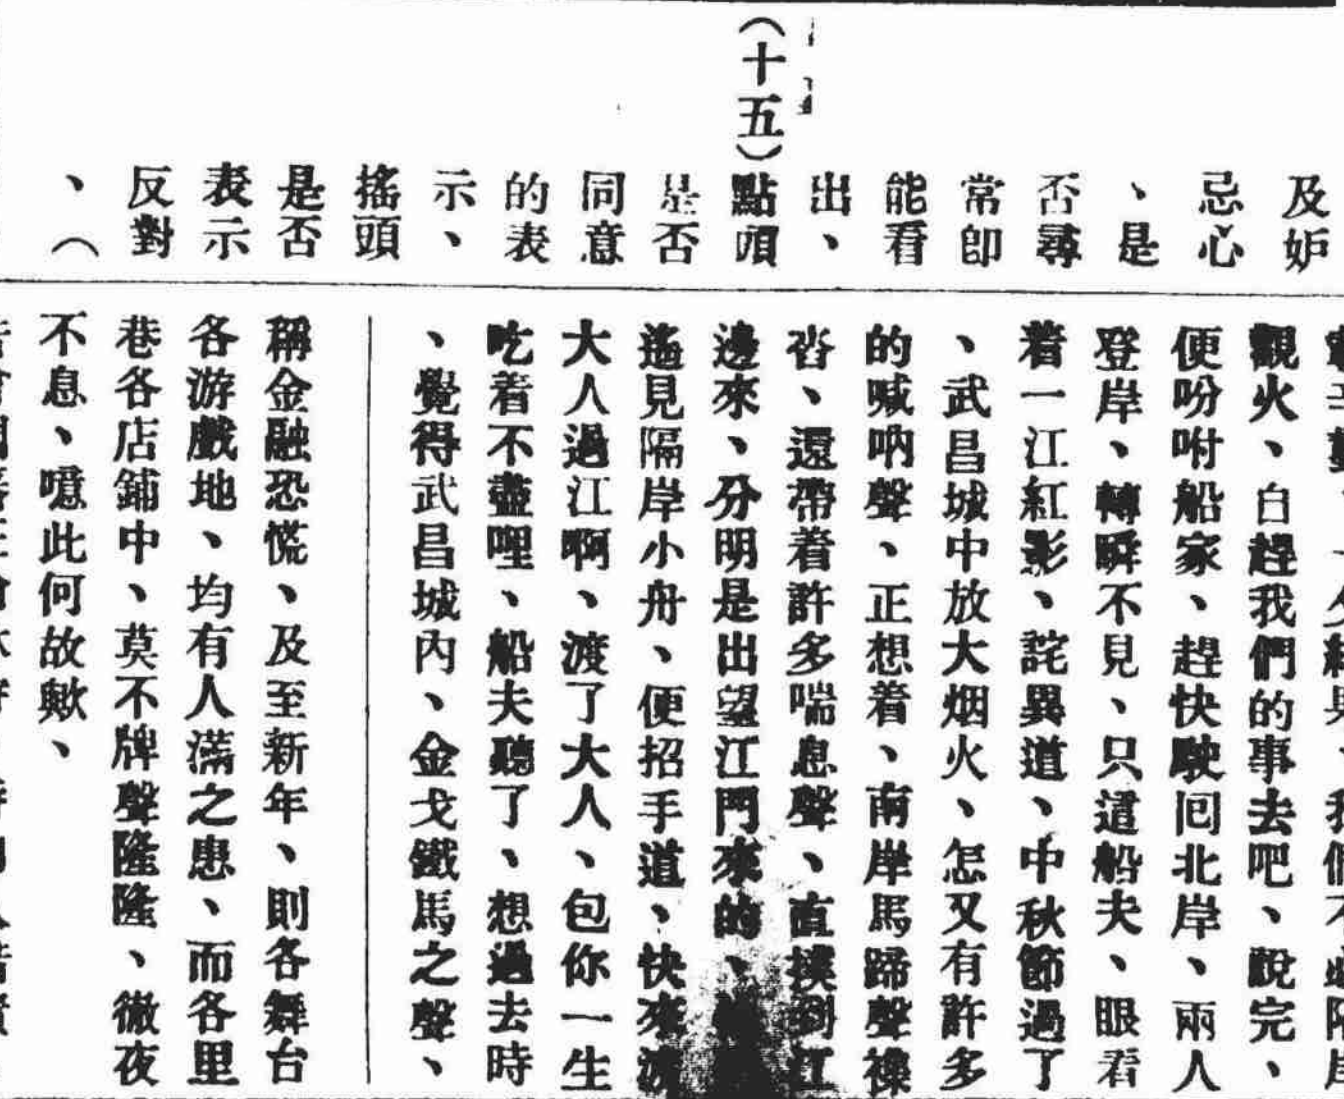 及妒
忌心
、是
否尋
常卽
能看
出、
（十五）點頭
是否
同意
的表
示、
搖頭
是否
表示
反對
、（
觀火、白趕我們的事去吧、說完、
便吩咐船家、趕快駛回北岸、兩人
登岸、轉瞬不見、只這船夫、眼看
着一江紅影、詫異道、中秋節過了
、武昌城中放大烟火、怎又有許多
的喊吶聲、正想着、南岸馬蹄聲襍
沓、還帶着許多喘息聲、直撲到江
邊來、分明是出望江門來的、
遙見隔岸小舟、便招手道、快來渡
大人過江啊、渡了大人、包你一生
吃着不盡哩、船夫聽了、想過去時
、覺得武昌城內、金戈鐵馬之聲、
稱金融恐慌、及至新年、則各舞台
各游戲地、均有人滿之患、而各里
巷各店鋪中、莫不牌聲隆隆、徹夜
不息、噫此何故歟、